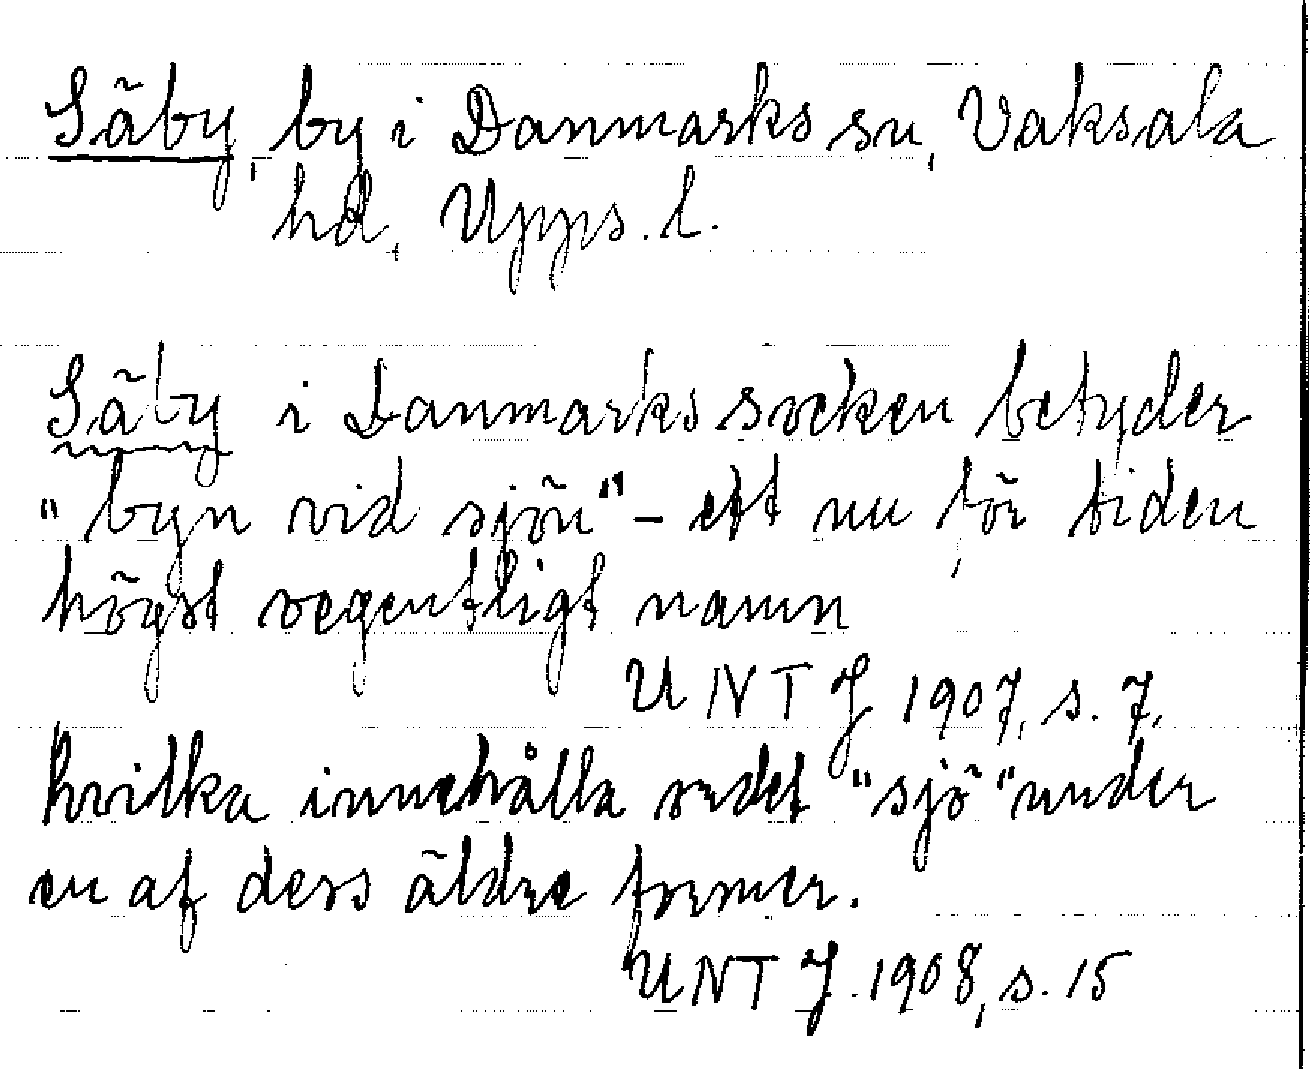 Säby, by i Danmarks sn, Vaksala
hd, Upps. l.
Säby i Danmarks socken betyder
"byn vid sjön" - ett nu för tiden
högst oegentligt namn
UNT J 1907, s. 7,
hvilka innehålla ordet "sjö" under
en af dess äldre former.
UNT J. 1908, s. 15